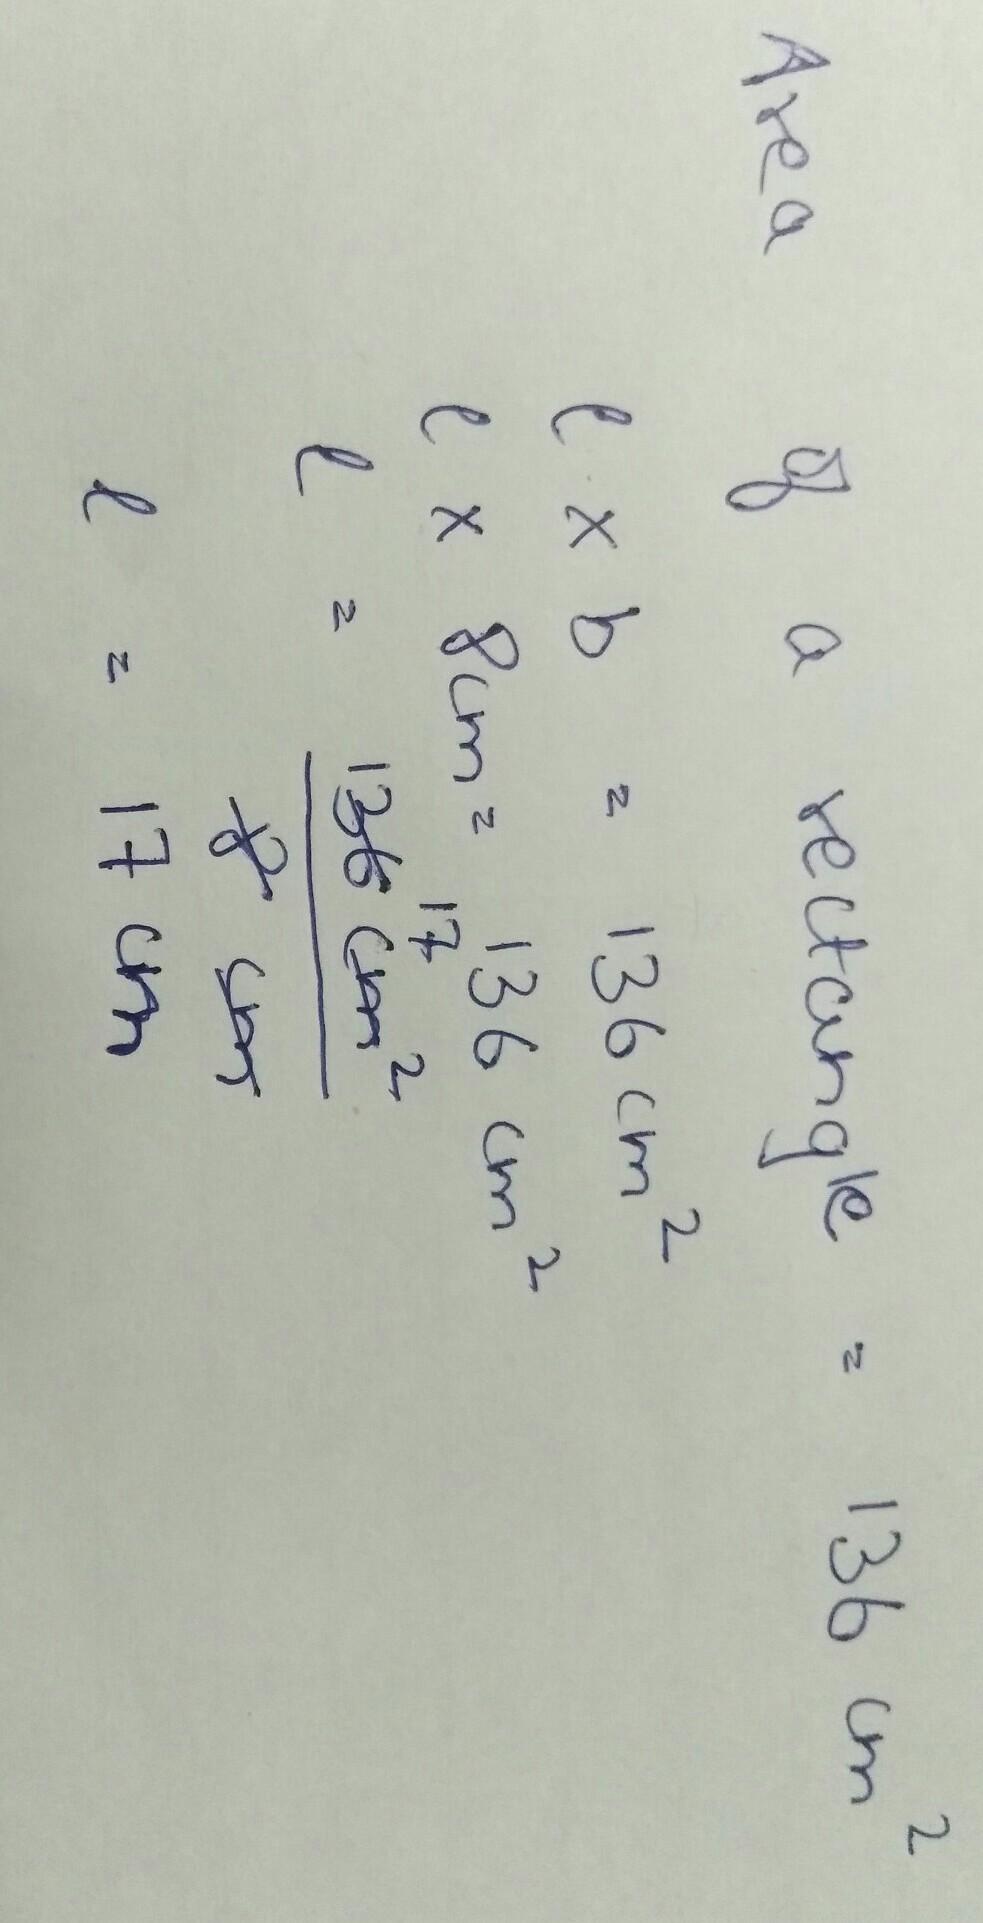 Area of a rectangle = 136 cm²
l x b = 136 cm²
l x 8cm = 136 cm²
17
l = 136 cm²
8 cm
l = 17 cm